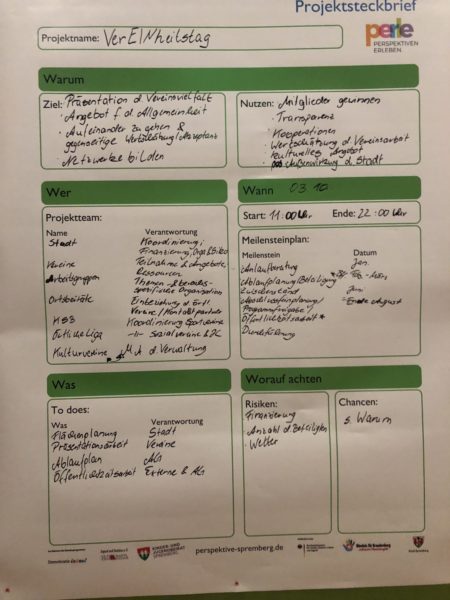 Projektsteckbrief
Projektname: VerEINheitstag
perle
PERSPEKTIVEN
ERLEBEN.
Warum
Ziel: Präsentation d. Vereinsvielfalt
· Angebot f. d. Allgemeinheit
· Aufeinander zu gehen &
gegenseitige Wertschätzung/Akzeptanz
· Netzwerke bilden
Nutzen: Mitglieder gewinnen
· Transparenz
· Kooperationen
· Wertschätzung d. Vereinsarbeit
· kulturelles Angebot
· Außenwirkung d. Stadt
Wer
Projektteam:
Name Verantwortung
Stadt Koordinierung;
Finanzierung, Orga &
Vereine Teilnahme & Angebote,
Ressourcen
Arbeitsgruppen Themen- & bereichs-
spezifische Organisation
Ortsbeiräte Einbeziehung d. örtl.
Vereine / Kontaktpartner
KSB Koordinierung Sportvereine
Örtliche Liga -"- Sozialvereine &
Kulturvereine M.A. d. Verwaltung
Wann 03.10.
Start: 11:00 Uhr Ende: 22:00 Uhr
Meilensteinplan:
Meilenstein Datum
Anlaufberatung Jan.
Ablaufplanung/Beteiligung
Zwischenstand Juni
/
Programmfreigabe / Ende August
Öffentlichkeitsarbeit
Durchführung
Was
To does:
Was Verantwortung
Flächenplanung Stadt
Präsentationsarbeit Vereine
Ablaufplan AG
Öffentlichkeitsarbeit Externe & AG
Worauf achten
Risiken:
Finanzierung
· Anzahl d. Beteiligten
· Wetter
Chancen:
s. Warum
KINDER- UND
JUGENDBEIRAT
SPREMBERG
perspektive-spremberg.de